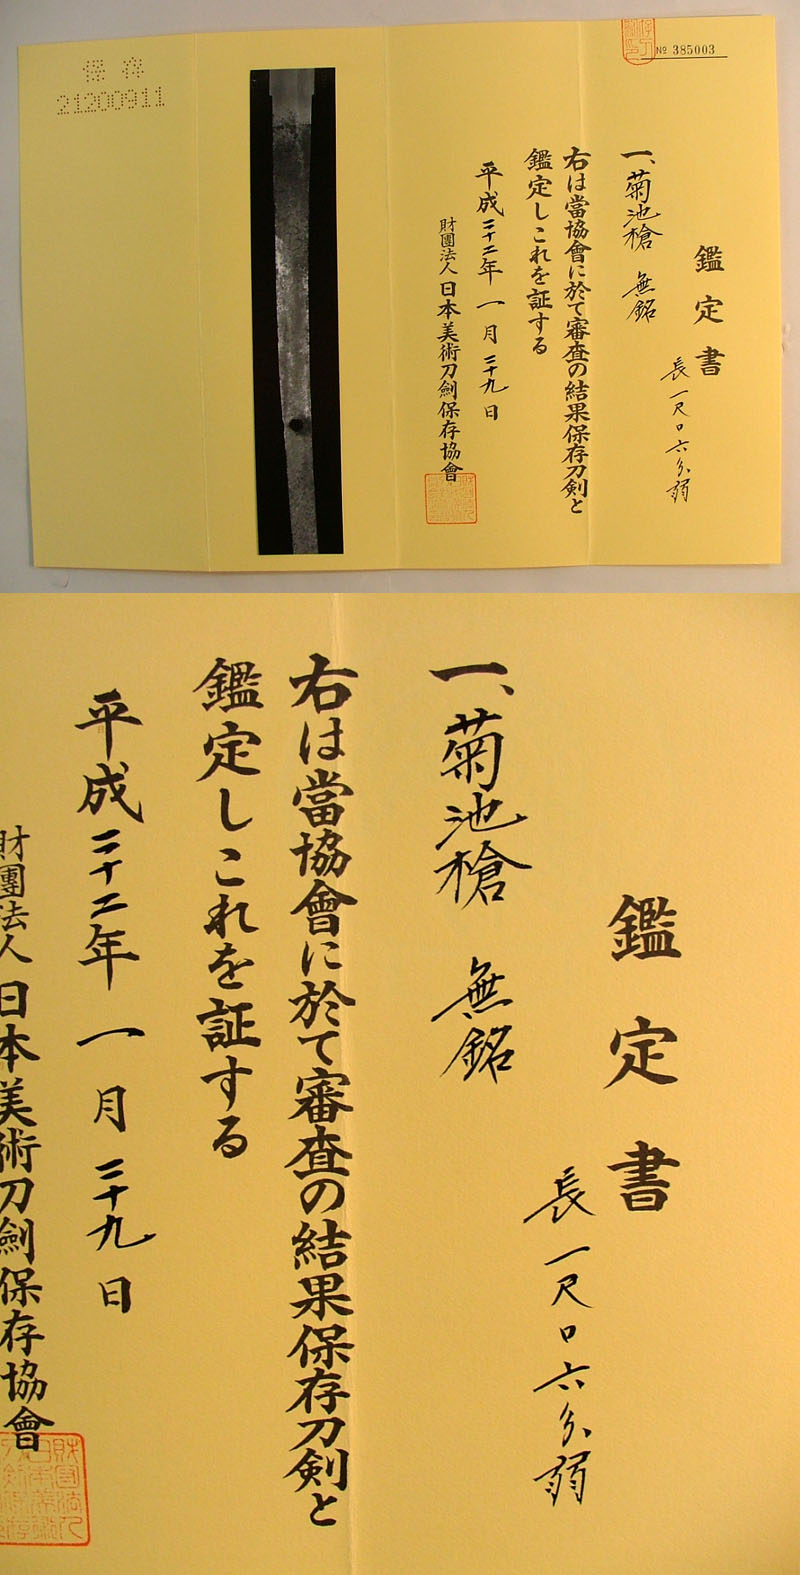 保存
21200911
№ 385003
鑑定書
長一尺〇六分弱
一、菊池槍 無銘
右は當協會に於て審査の結果保存刀剣と
鑑定しこれを証する
平成二十二年一月二十九日
財團法人日本美術刀劍保存協會
鑑定書
長一尺〇六分弱
一、菊池槍 無銘
右は當協會に於て審査の結果保存刀剣と
鑑定しこれを証する
平成二十二年一月二十九日
財團法人日本美術刀劍保存協會